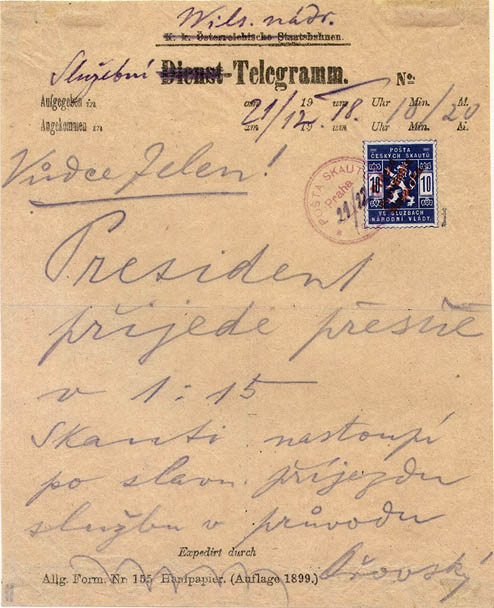 Wils. nádr.
K. k. Österreichische Staatsbahnen.
Služební Dienst-Telegramm. No
Aufgegeben in am 19 um Uhr Min. M.
21/12 18. 10/20
Angekommen in am 19 um Uhr Min. M.
Vůdce Jelen!
POŠTA SKAUTŮ
Praha
21/12
POŠTA
ČESKÝCH SKAUTŮ
10 10
VE SLUŽBÁCH
NÁRODNÍ VLÁDY.
President
přijede přesně
v 1:15
Skauti nastoupí
po slavn. příjezdu
službu v průvodu
Expedirt durch
Allg. Form. Nr 155 Hanfpapier. (Auflage 1899.)